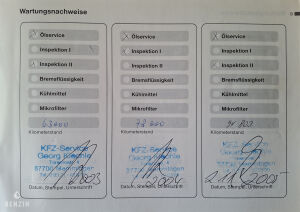 Wartungsnachweise
Ölservice
Inspektion I
Inspektion II
Bremsflüssigkeit
Kühlmittel
Mikrofilter
Kilometerstand
KFZ-Service
Datum, Stempel, Unterschrift
Ölservice
Inspektion I
Inspektion II
Bremsflüssigkeit
Kühlmittel
Mikrofilter
Kilometerstand
KFZ-Service
Datum, Stempel, Unterschrift
Ölservice
Inspektion I
Inspektion II
Bremsflüssigkeit
Kühlmittel
Mikrofilter
Kilometerstand
KFZ-Service
Datum, Stempel, Unterschrift
BENZIN